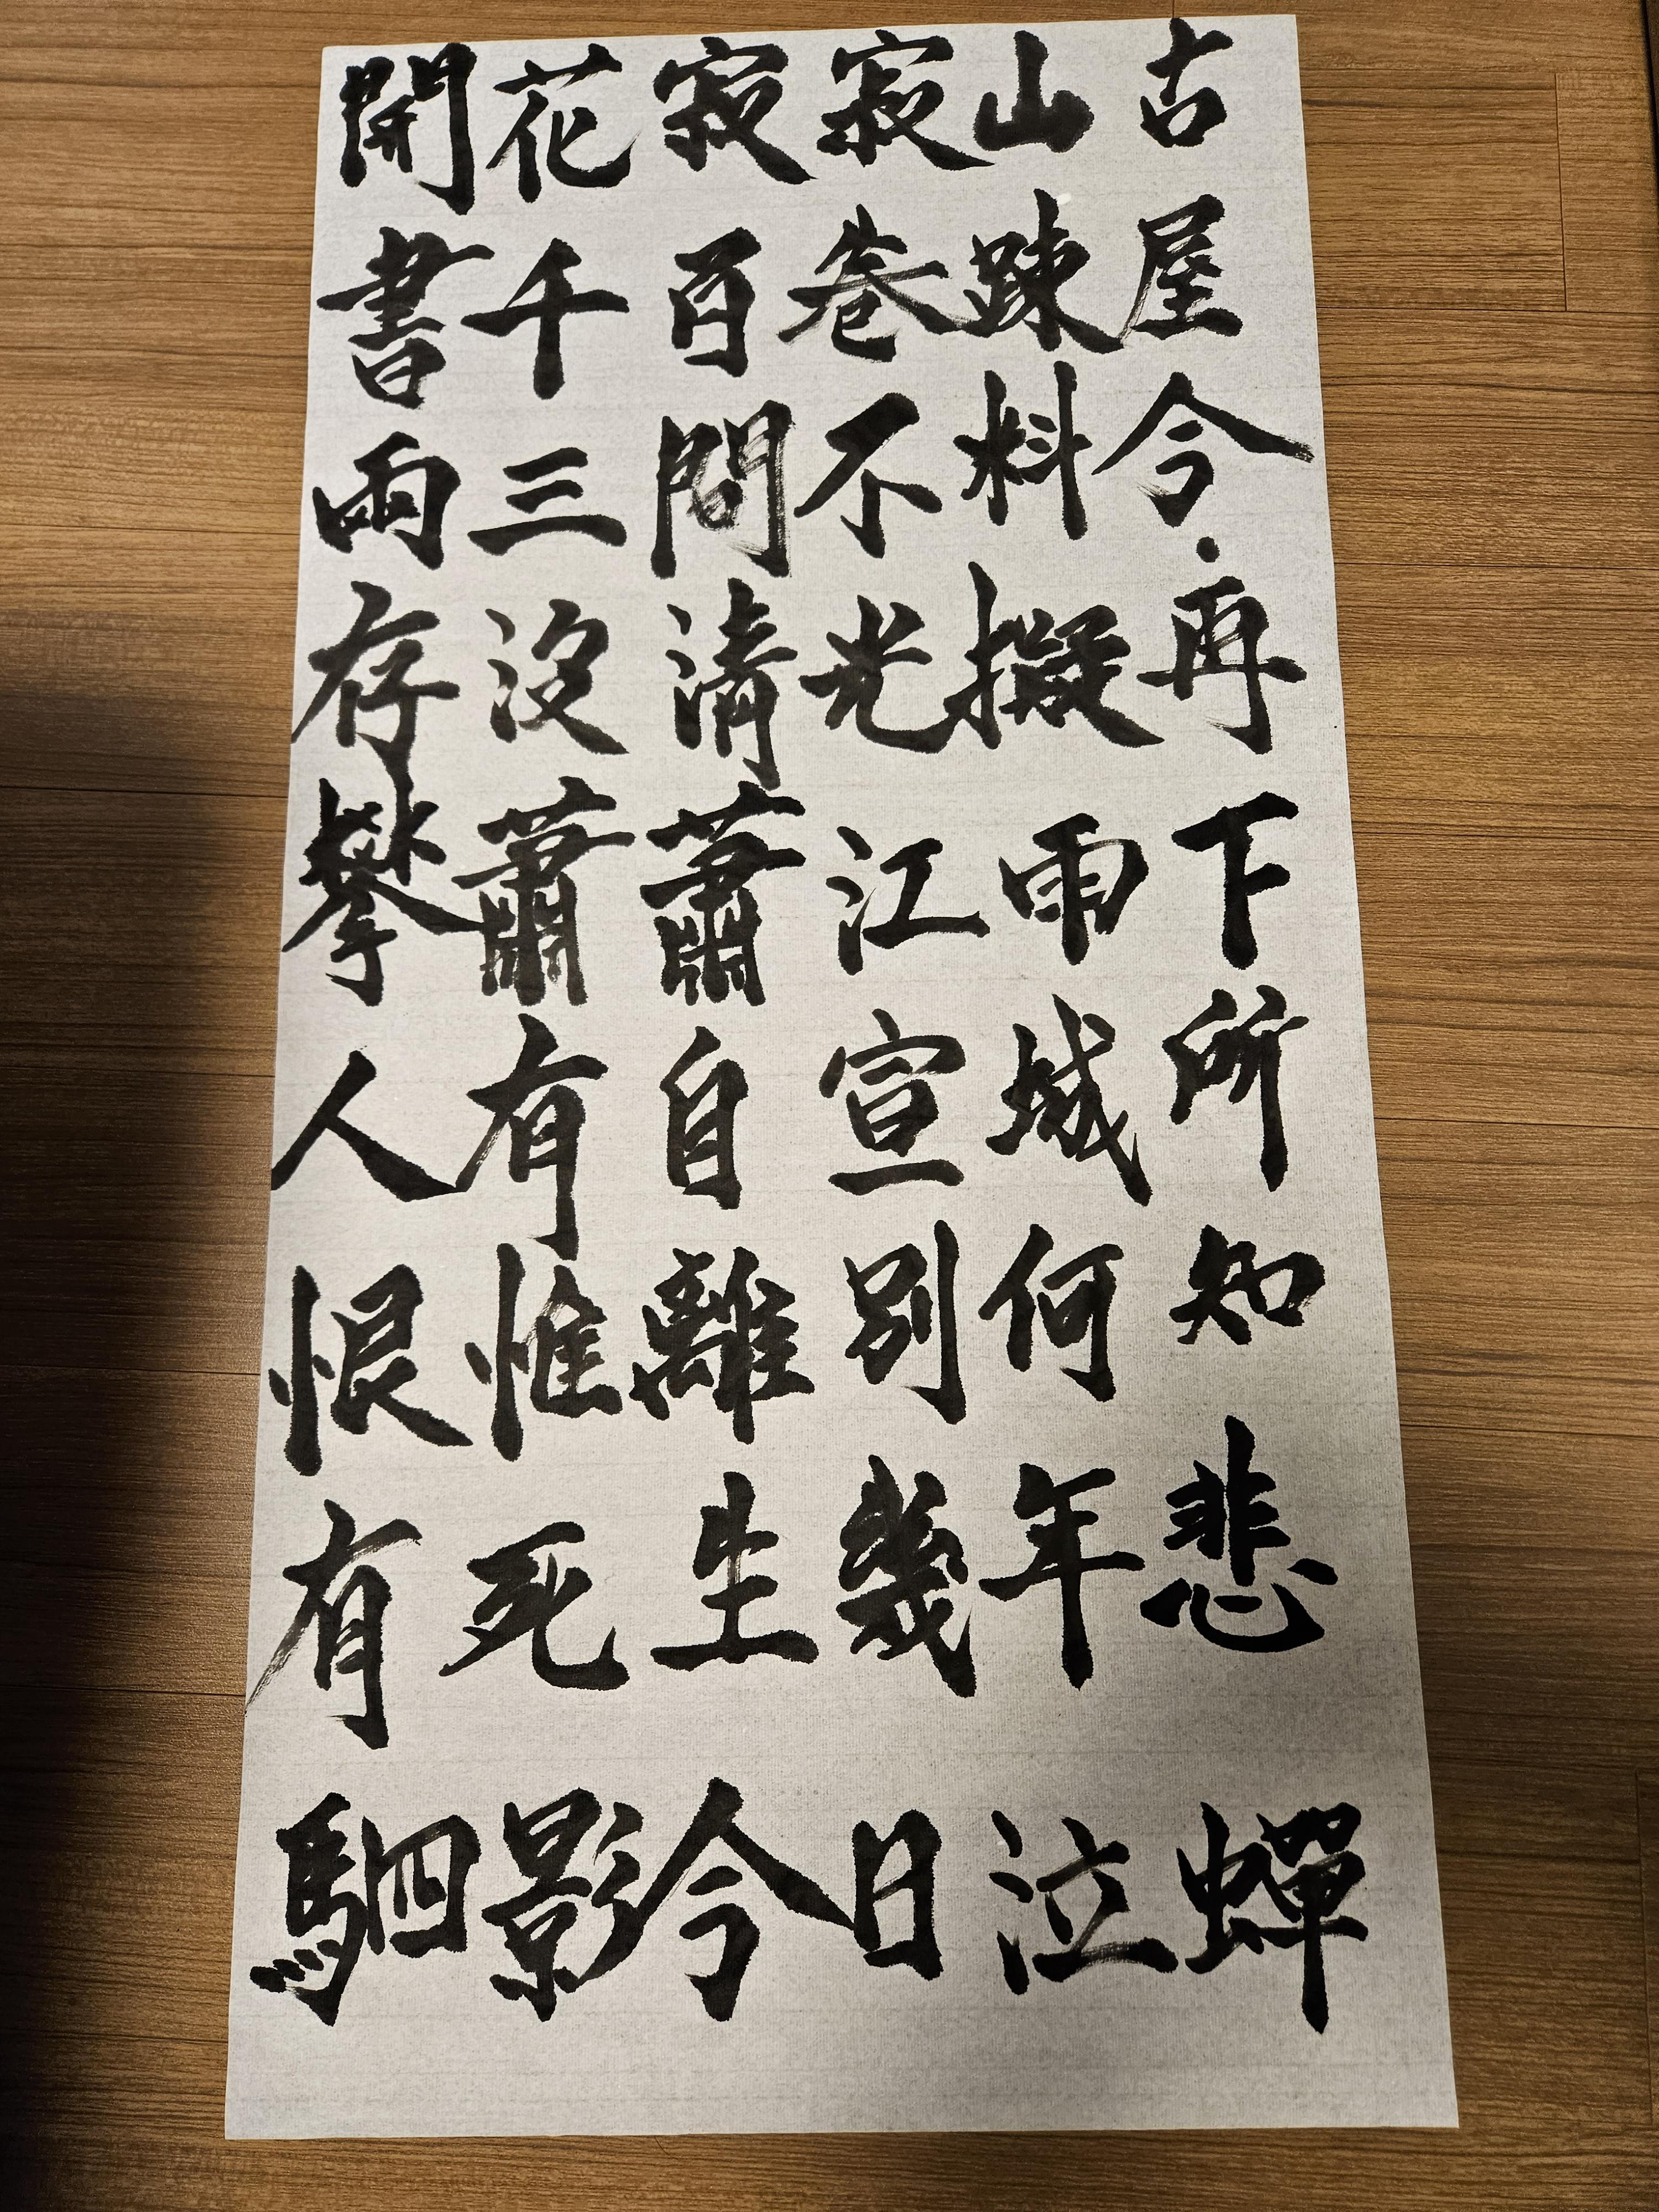 古屋今再下所知悲蟬
山疎料擬雨城何年泣
寂巷不光江宣別幾日
寂百問清蕭自離生今
花千三沒蕭有惟死影
開書雨存攀人恨有駟